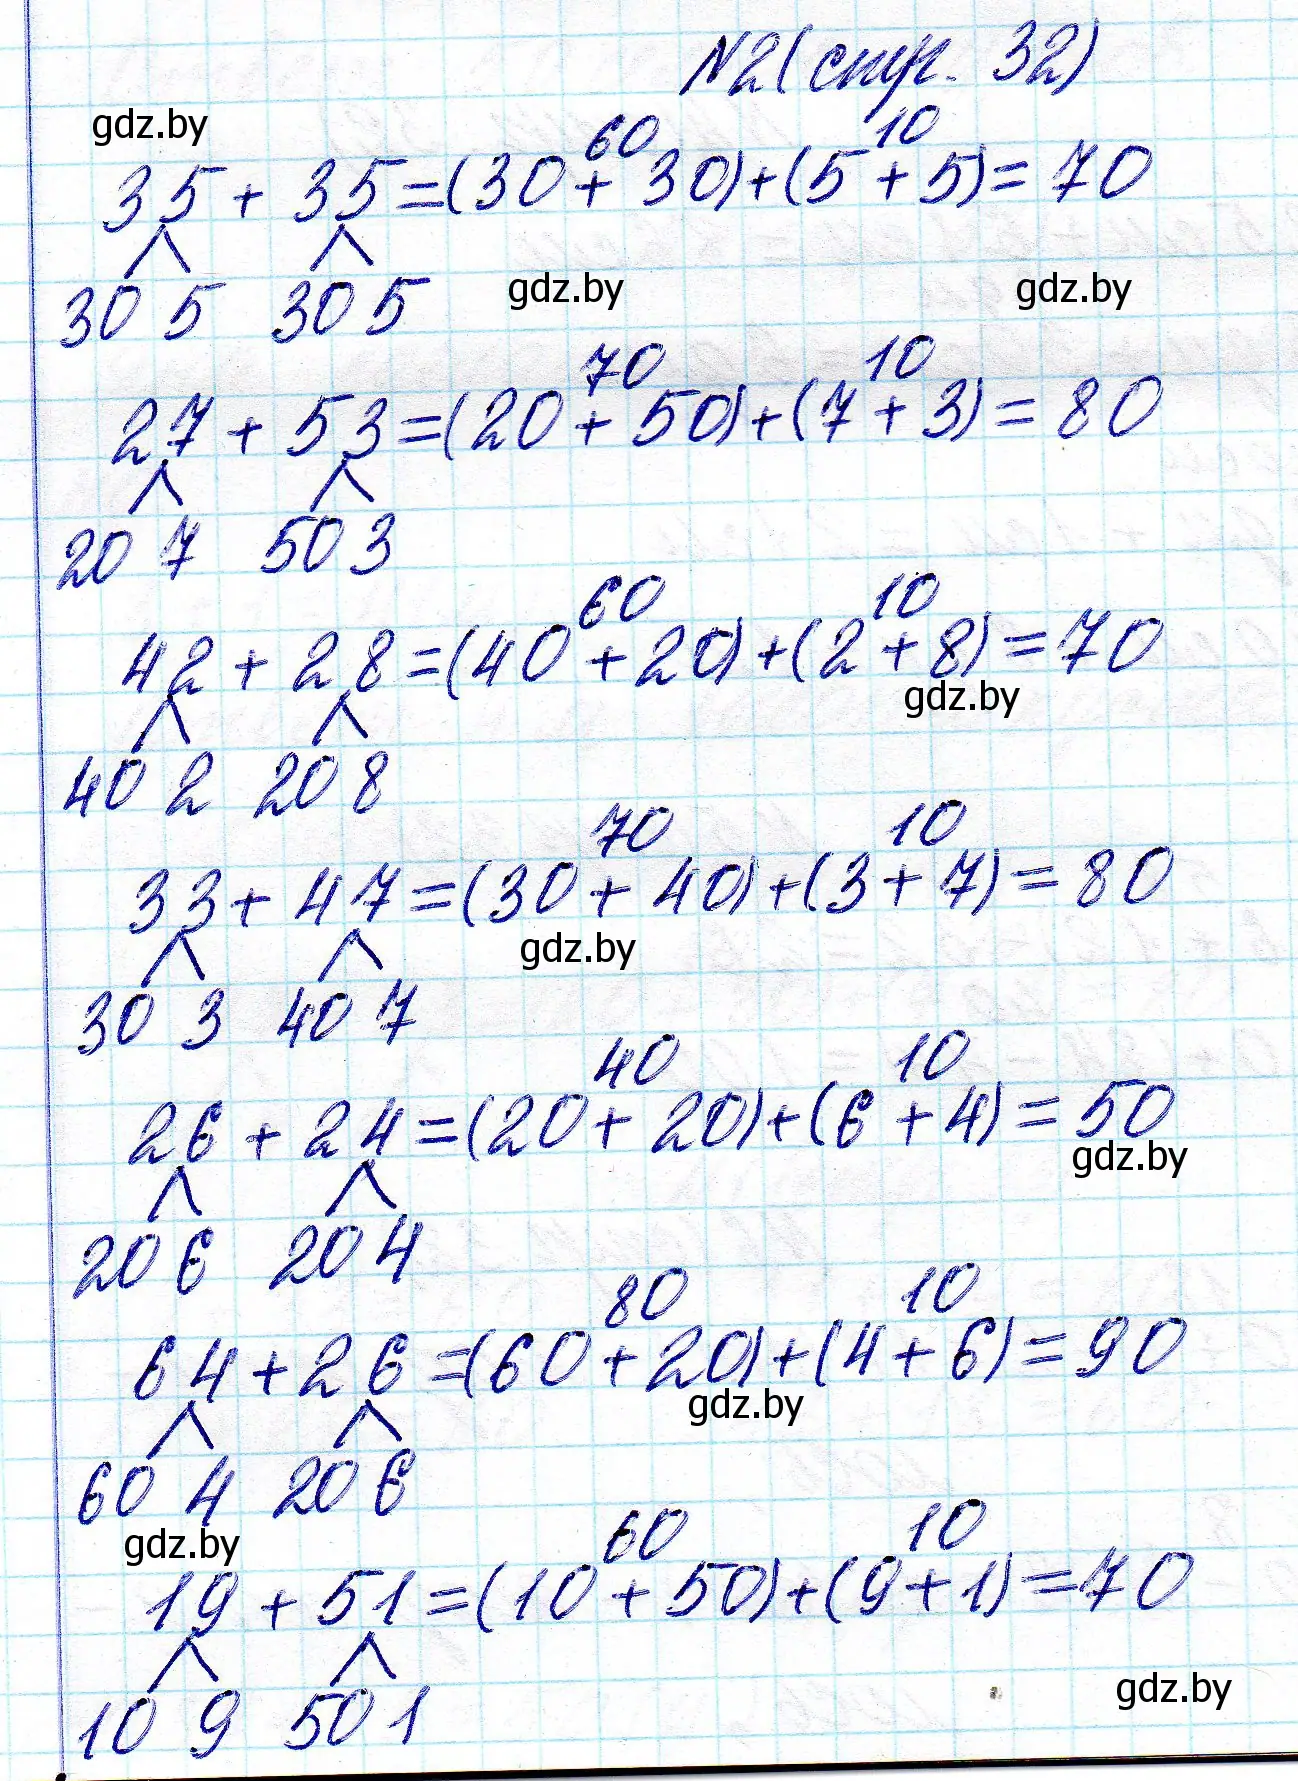 №2 (стр. 32)
gdz.by
60 10
35 + 35 = (30 + 30) + (5 + 5) = 70
30 5 30 5
gdz.by gdz.by
70 10
27 + 53 = (20 + 50) + (7 + 3) = 80
20 7 50 3
60 10
42 + 28 = (40 + 20) + (2 + 8) = 70
gdz.by
40 2 20 8
70 10
33 + 47 = (30 + 40) + (3 + 7) = 80
gdz.by
30 3 40 7
40 10
26 + 24 = (20 + 20) + (6 + 4) = 50
gdz.by
20 6 20 4
80 10
64 + 26 = (60 + 20) + (4 + 6) = 90
gdz.by
60 4 20 6
gdz.by
60 10
19 + 51 = (10 + 50) + (9 + 1) = 70
10 9 50 1
gdz.by